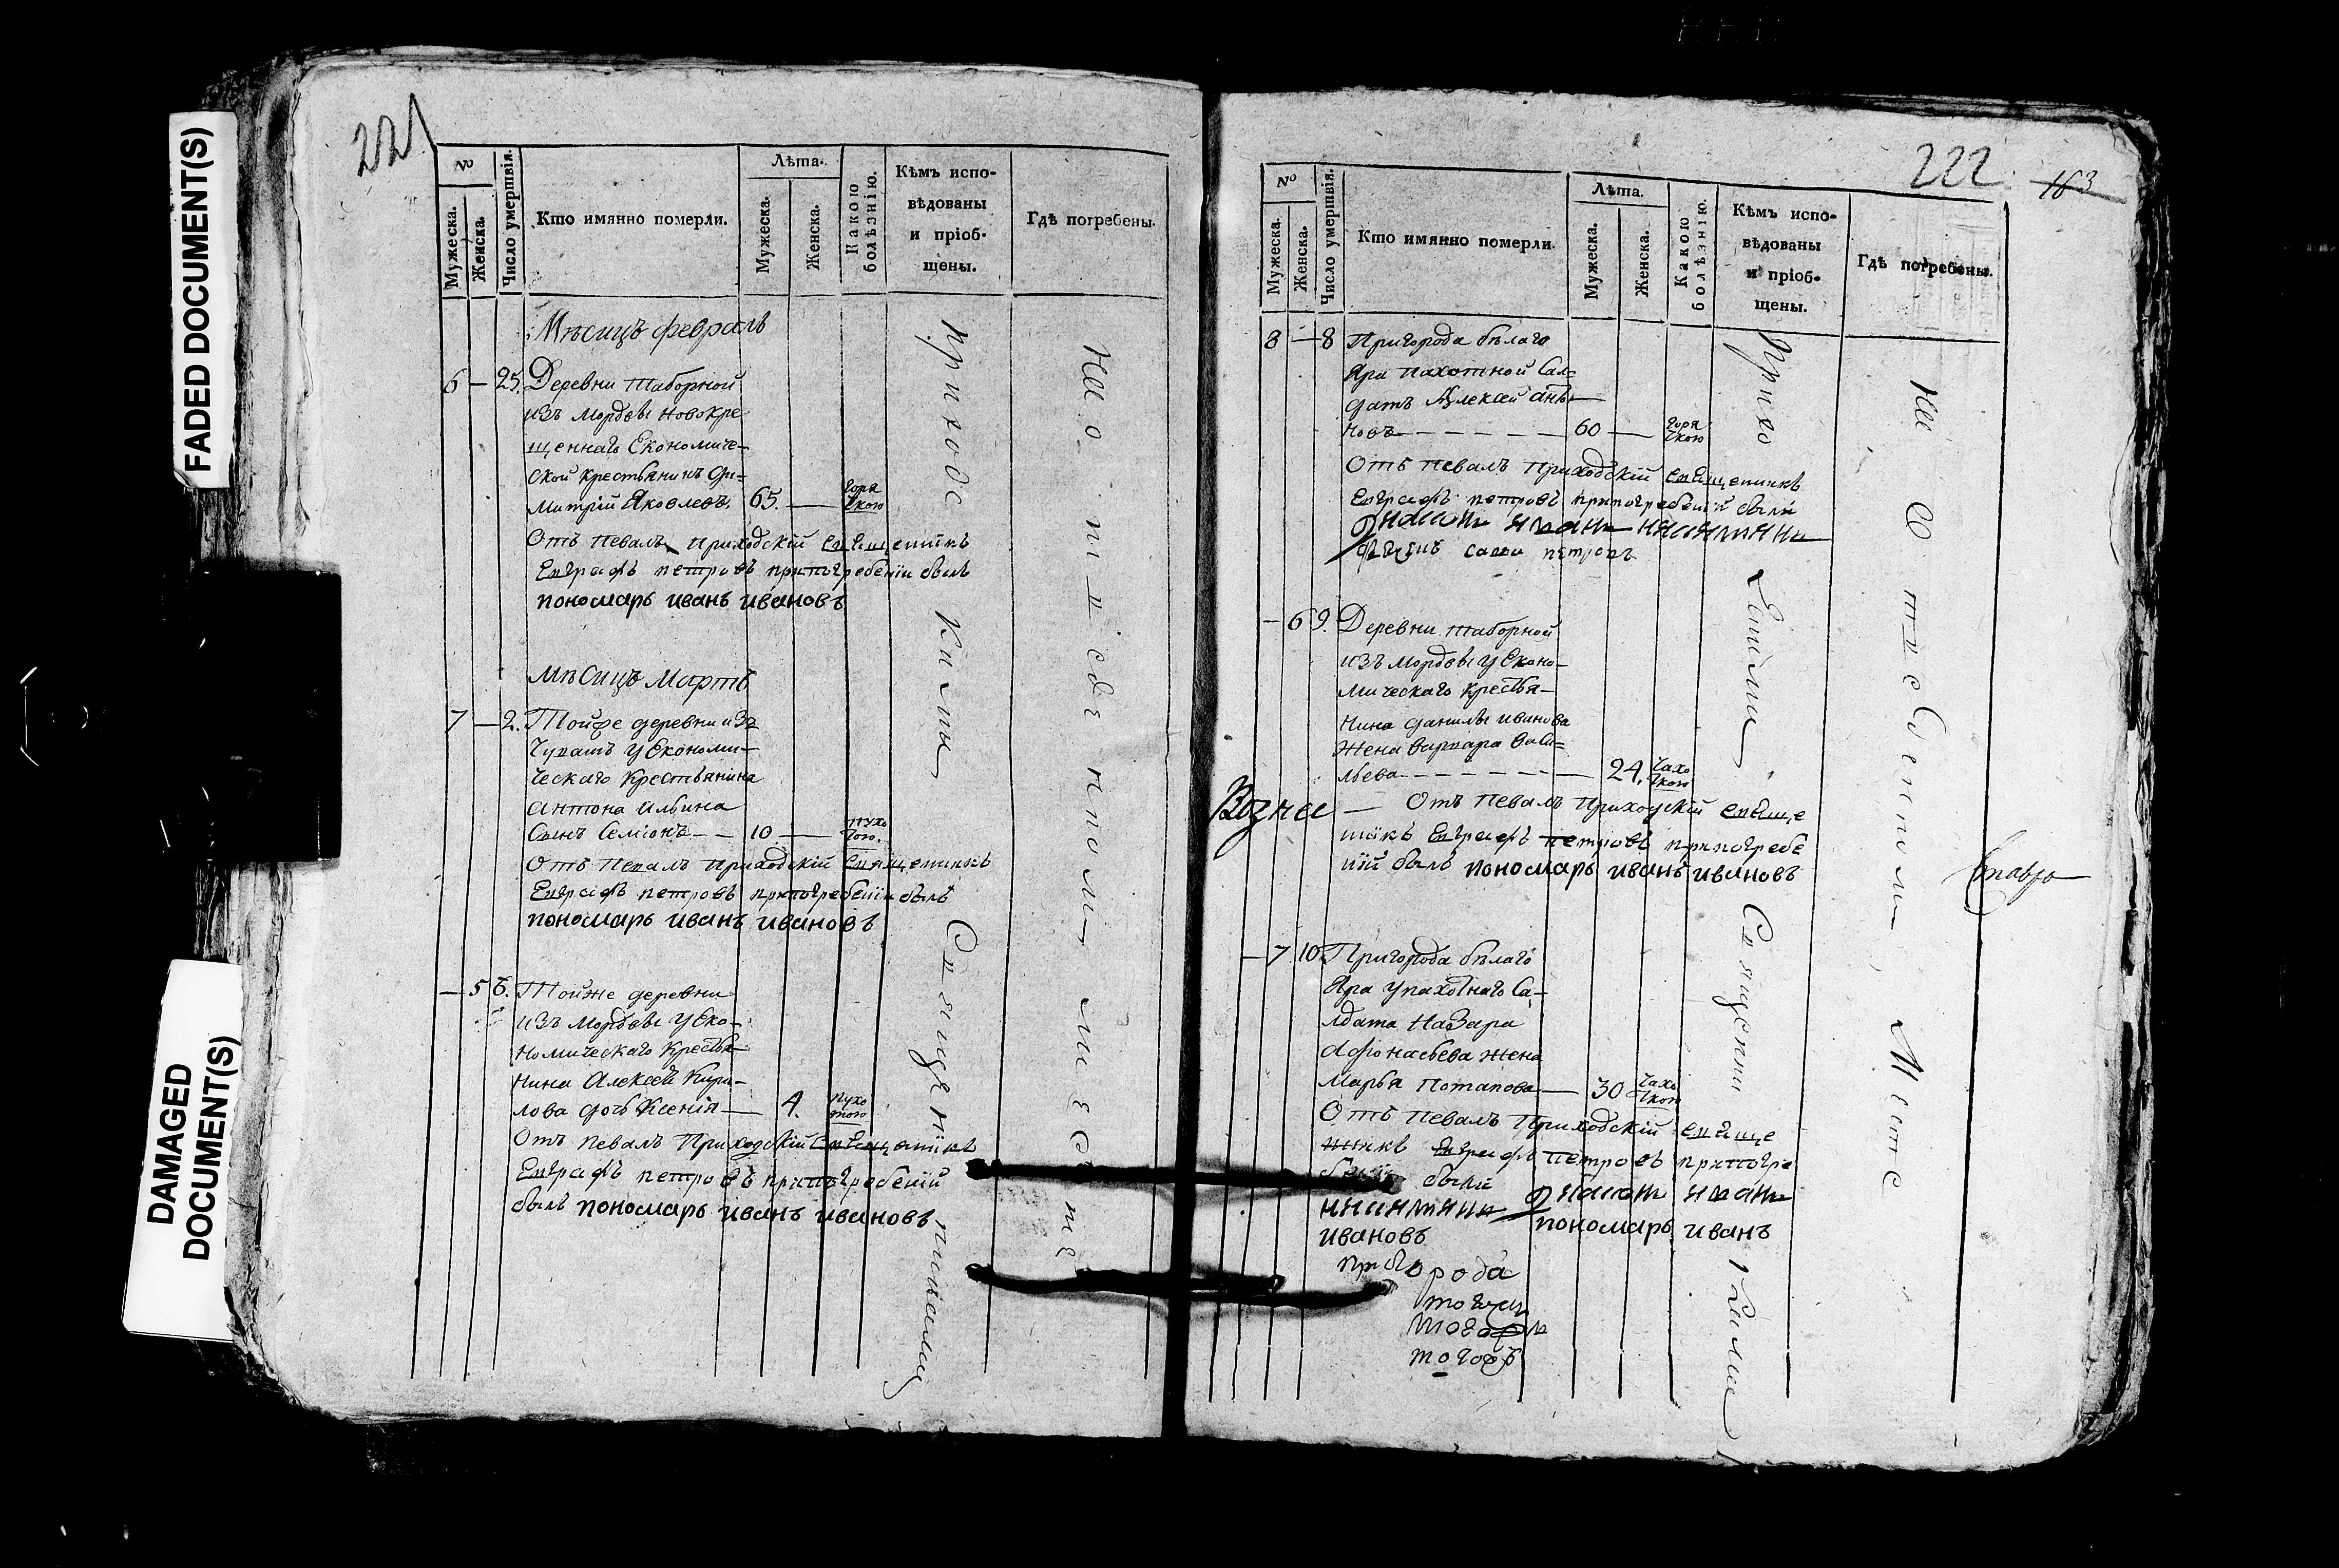 FADED DOCUMENT(S)
DAMAGED DOCUMENT(S)
221
№
Мужеска.
Женска.
Число умертвія.
Кто имянно померли.
Лѣта.
Мужеска.
Женска.
Какою болѣзнію.
Кѣмъ испо-
вѣдованы
и пріоб-
щены.
Гдѣ погребены.
Мѣсицъ февраль
6 — 25. Деревни Таборной
изъ Мордвы новокре
щеннаго Економиче-
ской крестьянинъ Ди-
митрій Яковлевъ. 65. — горя
чкою
Отъ певалъ приходскій священникъ
Евграфъ петровъ припогребеніи былъ
пономарь иванъ ивановъ
Мѣсицъ Мартъ
7 — 2. Тойже деревни изъ
Чувашъ у Економи-
ческаго Крестьянина
Антона Ильина
Сынъ Семіонъ — — 10 —
Отъ певалъ приходскій священникъ
Евграфъ петровъ припогребеніи былъ
пономарь иванъ ивановъ
— 5 6. Тойже деревни
изъ Мордвы у Еко-
номическаго Крестья-
нина Алексея Кири-
лова дочь Ксенія — 4.
Отъ певалъ Приходскій священникъ
Евграфъ петровъ припогребеніи
былъ пономарь иванъ ивановъ
приходскими Священниками
На отведенномъ месте
222
183
№
Мужеска.
Женска.
Число умертвія.
Кто имянно померли.
Лѣта.
Мужеска.
Женска.
Какою болѣзнію.
Кѣмъ испо-
вѣдованы
и пріоб-
щены.
Гдѣ погребены.
8 — 8 Пригорода бѣлаго
Яра пахотной Сал-
датъ Алексей
новъ — — — 60 — горя
чкою
Отъ певалъ Приходскій священникъ
Евграфъ петровъ припогребеніи были
петровъ
— 6 9. Деревни Таборной
изъ Мордвы у Еконо-
мическаго Крестья-
нина данилы иванова
жена варвара Васи-
льева — — — 24. чахо
ткою
Вознес — Отъ певалъ Приходскій священ
никъ Евграфъ петровъ припогребе
ніи былъ пономарь иванъ ивановъ
Ставро
— 7 10 Пригорода бѣлаго
Яра у пахотнаго Са-
лдата Назара
Афонасьева жена
Марья Потапова — 30 чахо
ткою
Отъ певалъ Приходскій священ
никъ Евграфъ петровъ припогре
были
пономарь иванъ
ивановъ
пригорода
тогож
приходскими Священниками
На отведенномъ Месте